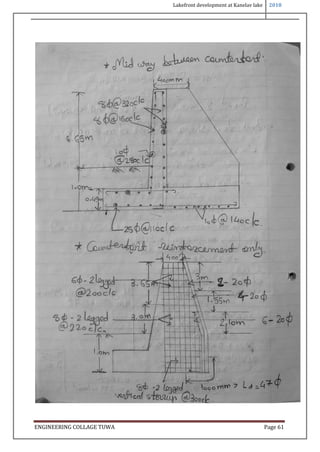 Lakefront development at Kanelav lake 2018
* Mid way between counterfort.
400mm
8ϕ@320c/c
8ϕ@160c/c
6.65m
10ϕ
@280c/c
1.0m
0.45m
25ϕ@110c/c
10ϕ@140c/c
* Counterfort reinforcement only
400
6ϕ-2legged
@200c/c
3.65m
3m
2-20ϕ
1.55m
4-20ϕ
8ϕ-2legged
@220c/c
3.0m
2.10m
6-20ϕ
1.0m
8ϕ-2legged
vertical stirrup @300c/c
1000mm > Ld=47ϕ
ENGINEERING COLLAGE TUWA Page 61